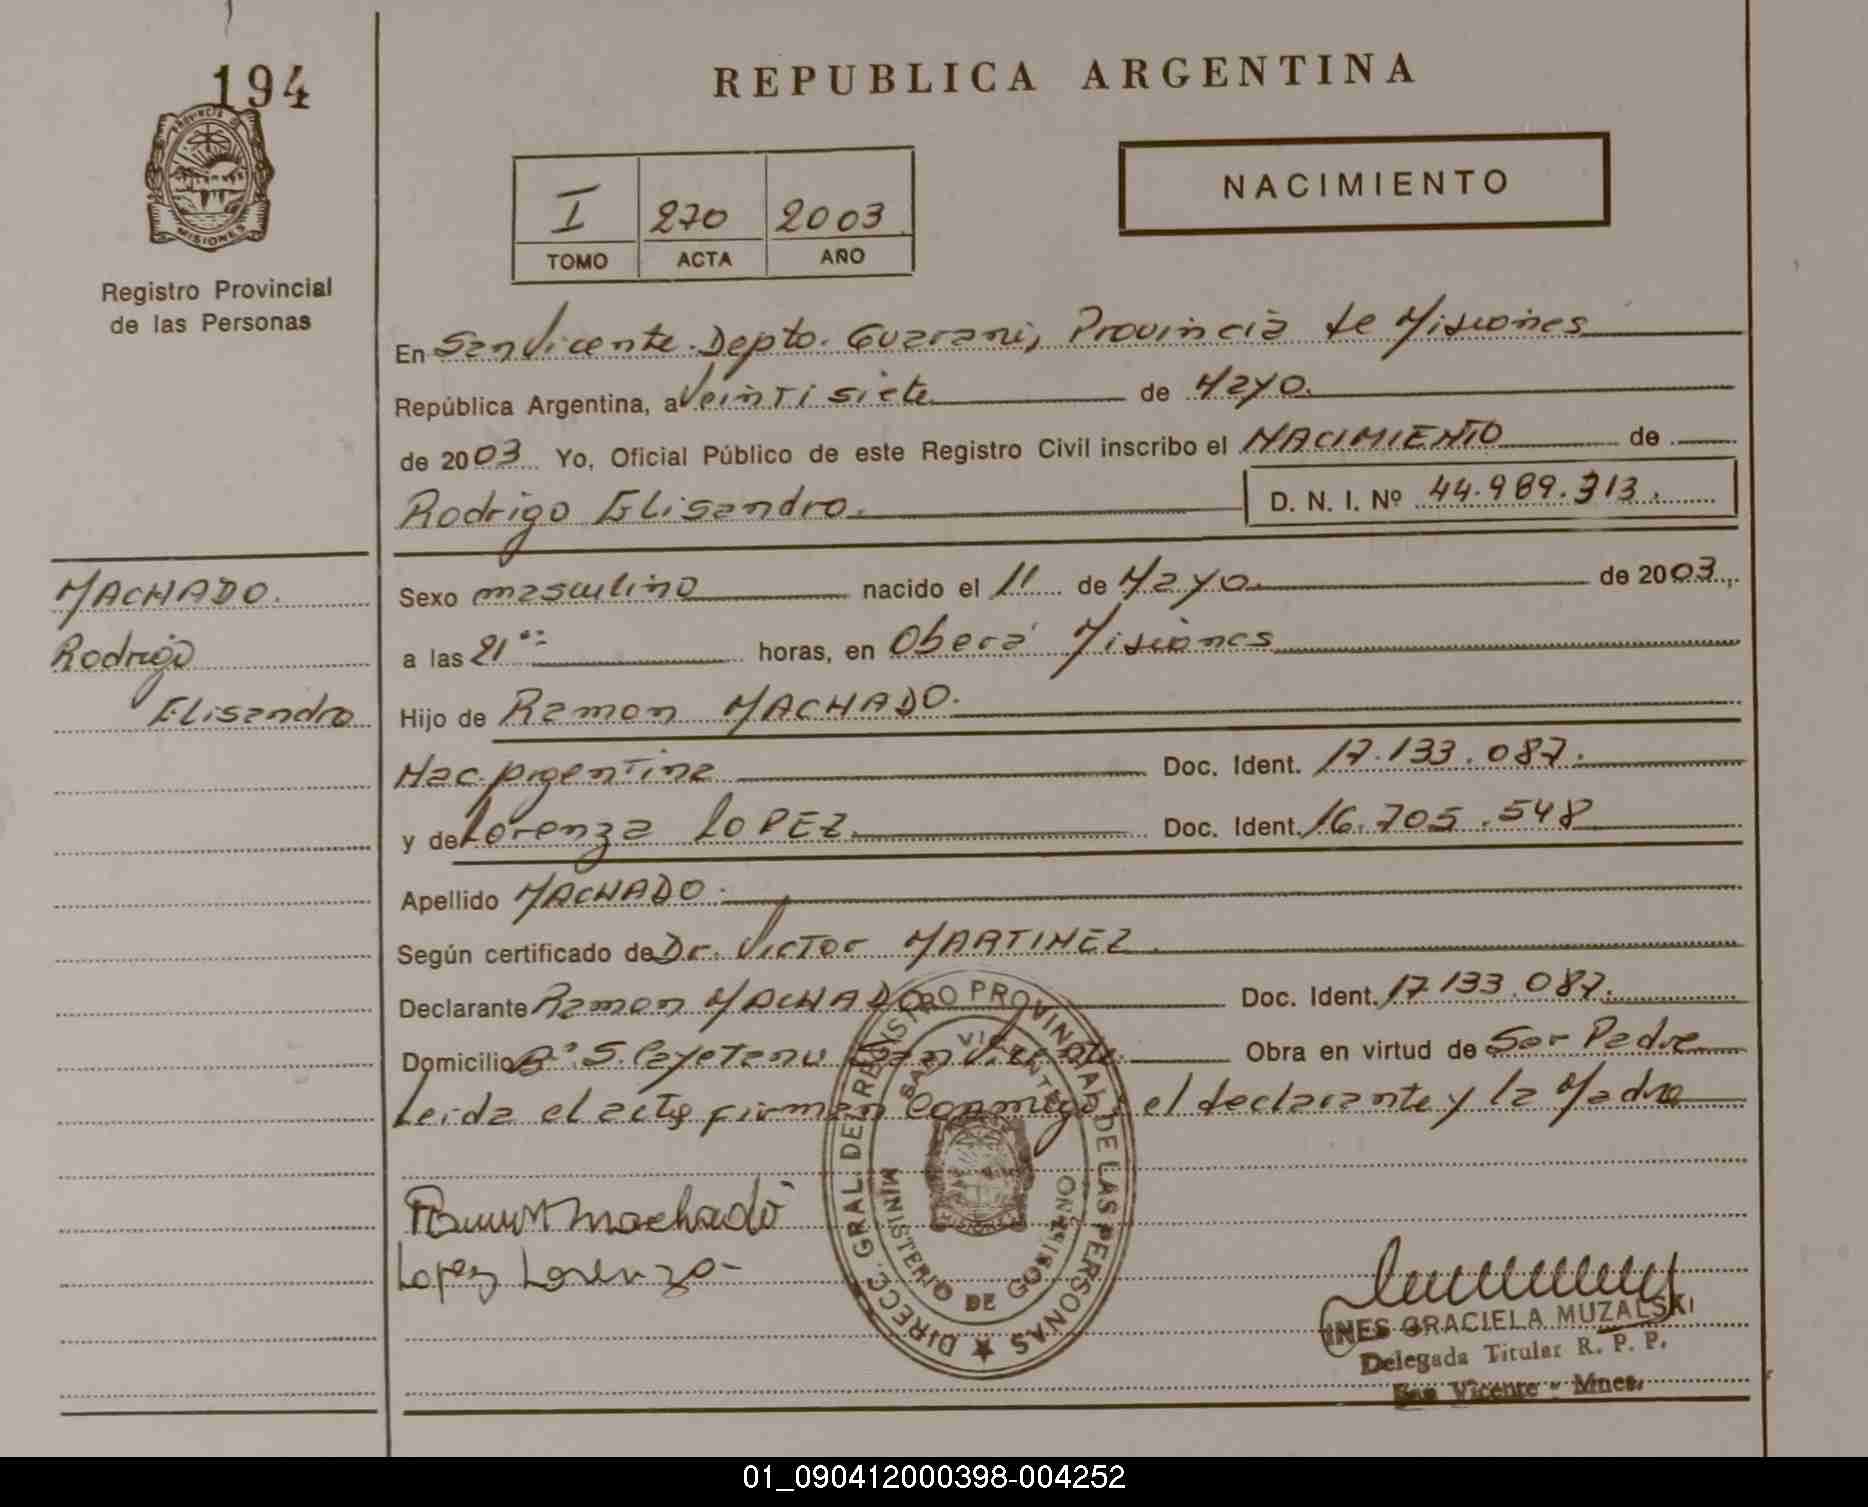 194
PROVINCIA DE
MISIONES
Registro Provincial
de las Personas
REPUBLICA ARGENTINA
I 270 2003
TOMO ACTA AÑO
NACIMIENTO
En San Vicente. Depto. Guarani, Provincia de Misiones
República Argentina, a Veintisiete de Mayo.
de 2003 Yo, Oficial Público de este Registro Civil inscribo el NACIMIENTO de
Rodrigo Elisandro. D. N. I. Nº 44.989.313.
MACHADO.
Rodrigo
Elisandro
Sexo masculino nacido el 11 de Mayo. de 2003.,
a las 21 horas, en Oberá Misiones
Hijo de Ramon MACHADO.
Nac. Argentina Doc. Ident. 17.133.087.
y de Lorenza LOPEZ. Doc. Ident. 16.705.548
Apellido MACHADO.
Según certificado de Dr. Victor MARTINEZ.
Declarante Ramon MACHADO Doc. Ident. 17 133.087.
Domicilio Bº. S. Cayetano San Vicente. Obra en virtud de Ser Padre
Leida el acta firman Conmigo, el declarante y la Madre
Machado
Lopez Lorenza
DIRECC. GRAL. DEL REGISTRO PROVINCIAL DE LAS PERSONAS
SAN VICENTE
MINISTERIO DE GOBIERNO
INES GRACIELA MUZALSKI
Delegada Titular R. P. P.
San Vicente - Mnes.
01_090412000398-004252